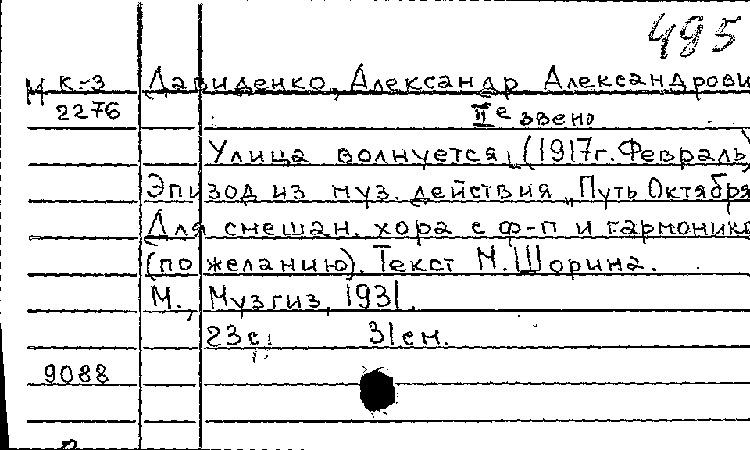 495
М к-3 Давиденко, Александр Александрови
2276 IIе звено
Улица волнуется, (1917г. Февраль)
Эпизод из муз. действия „Путь Октября
Для смешан. хора с ф-п и гармоник
(по желанию). Текст М. Шорина.
М., Музгиз, 1931.
23с. 31см.
9088